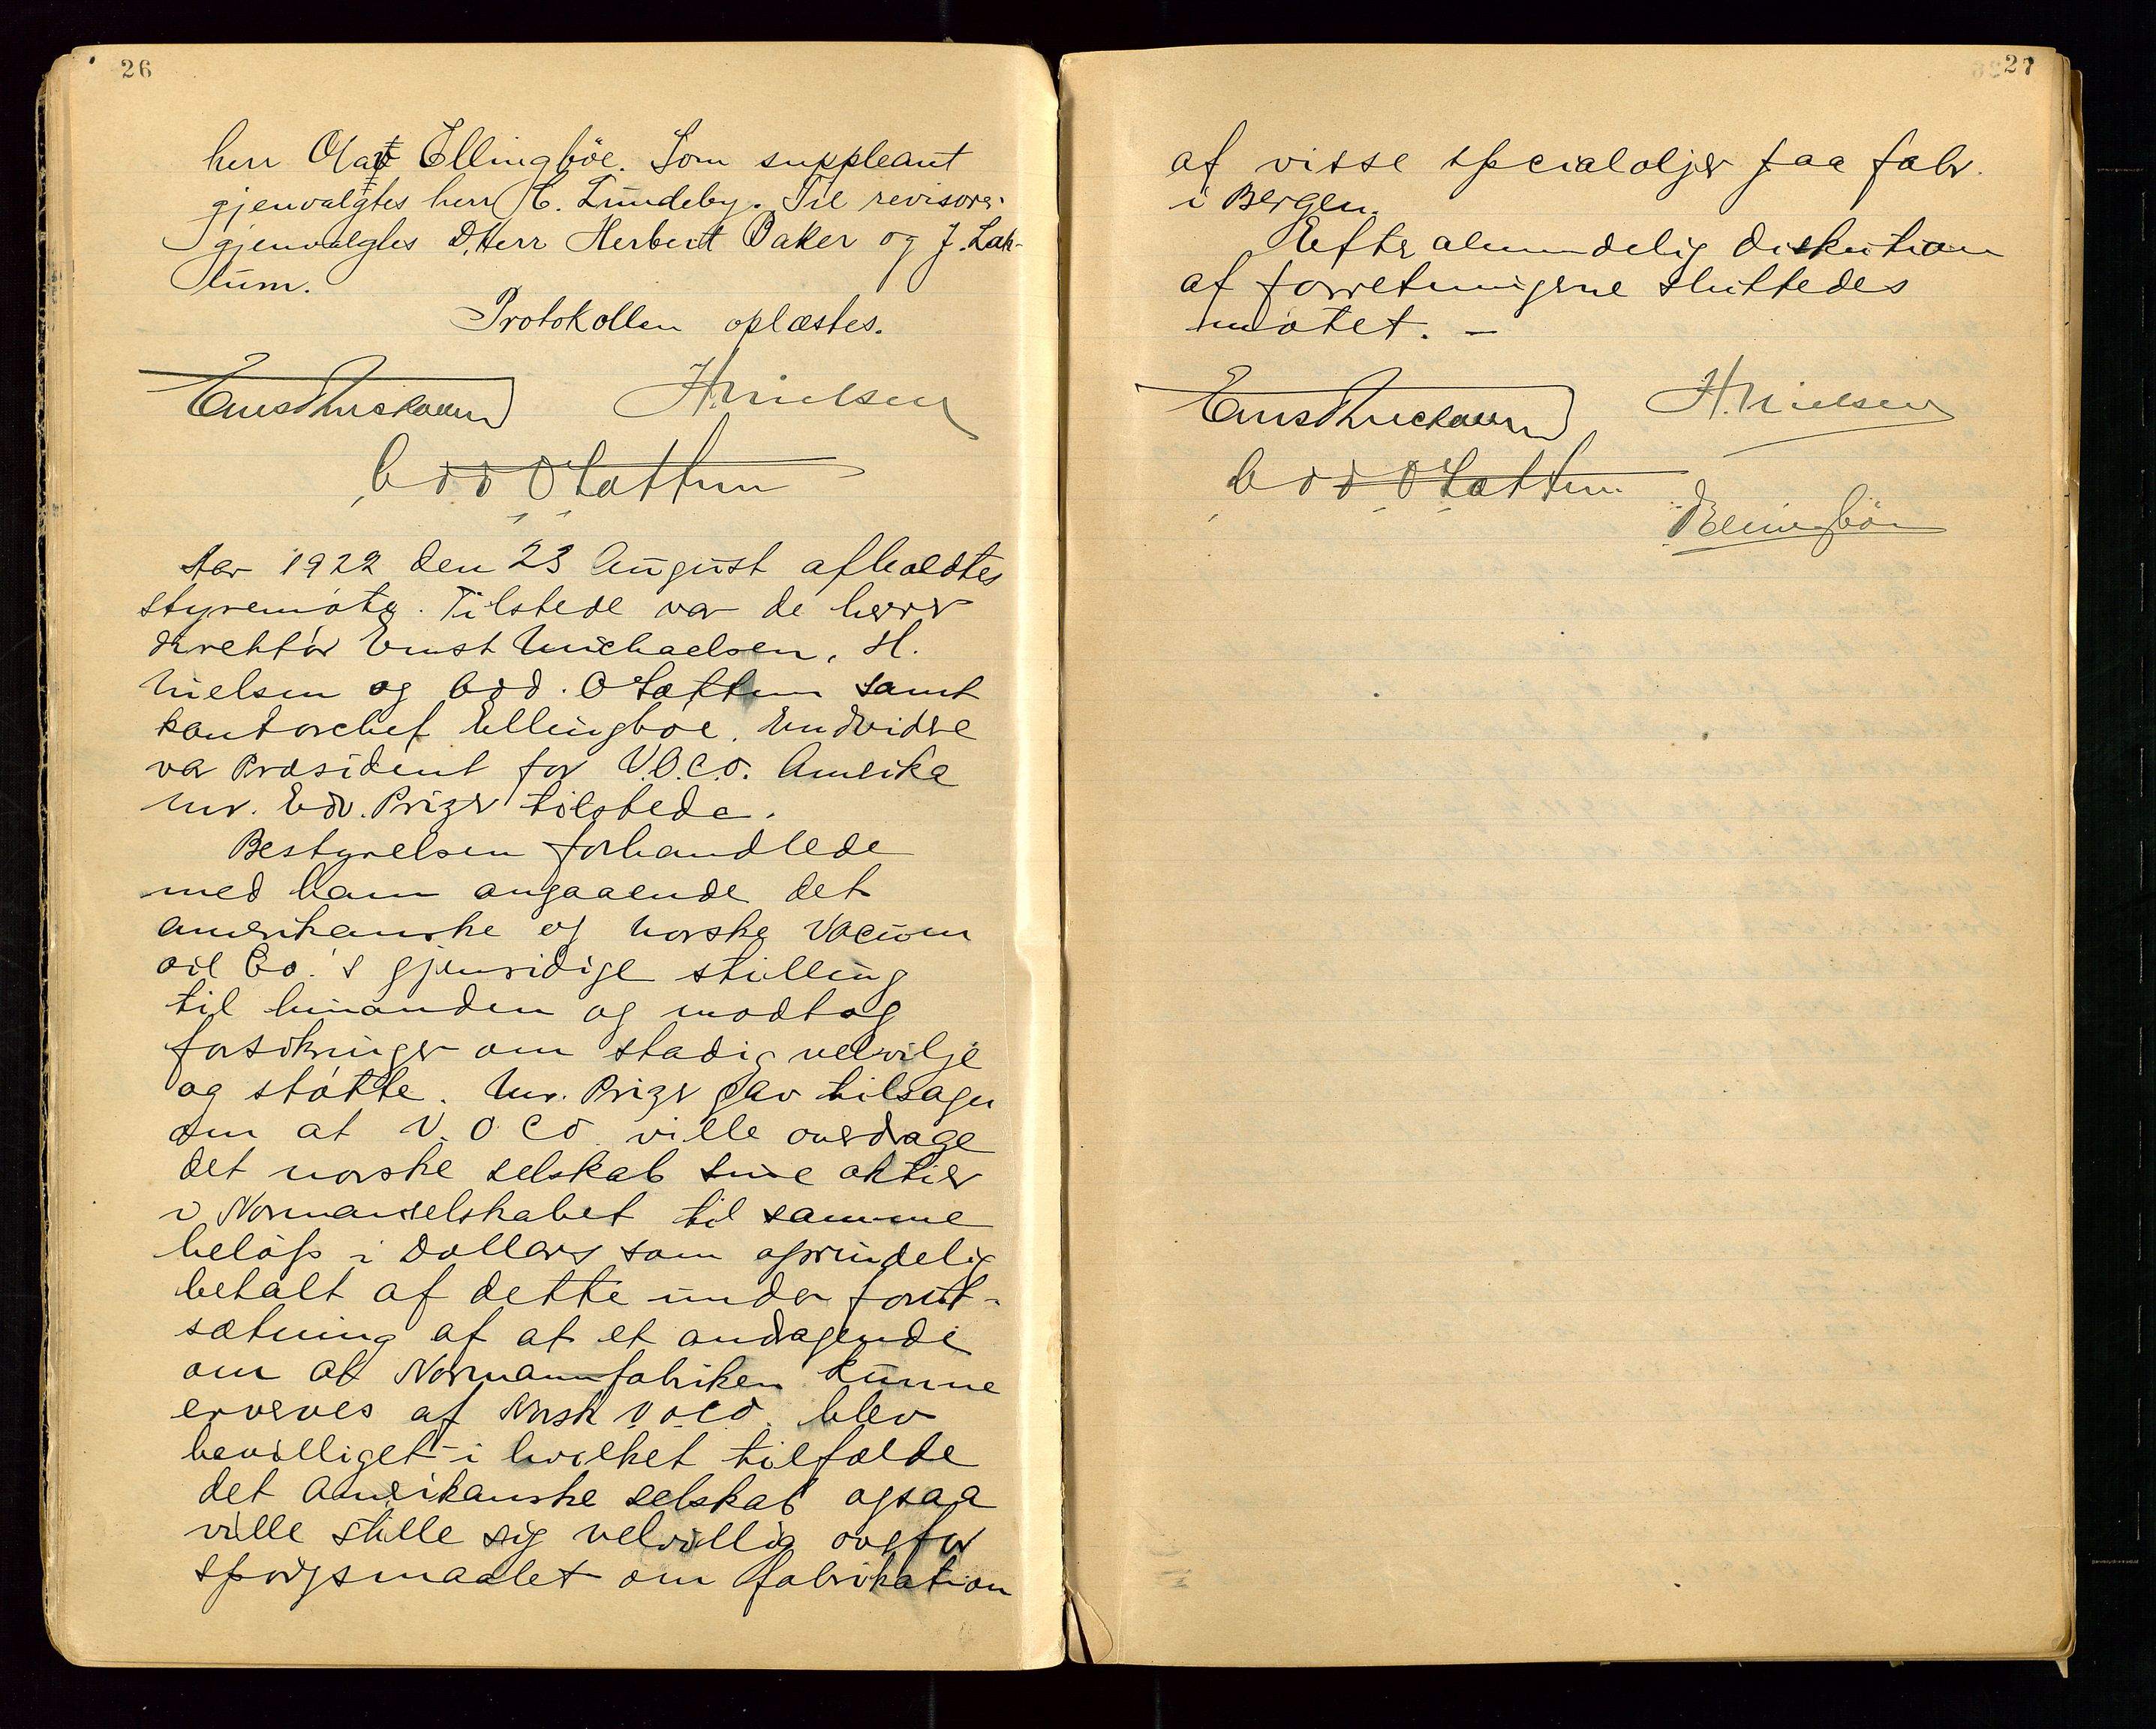 26
herr Olaf Ellingbøe. Som suppleant
gjenvalgtes herr C. Lundeby. Til revisorer
gjenvalgtes D.Herr Herbert Baker og J. Lak-
lum.
Protokollen oplæstes.
Ernst Michaelsen H. Nielsen
Odd O Sættem
Aar 1922 den 23 August afholdtes
styremøte. Tilstede var de herrer
direktør Ernst Michaelsen, H.
Nielsen og Odd. O Sættem samt
kontorchef Ellingbøe. Endvidre
var Præsident for V.O.C.O. Amerika
Mr. Edv. Prizer tilstede.
Bestyrelsen forhandlede
med ham angaaende det
amerikanske og norske Vacuum
oil Co.'s gjensidige stilling
til hinanden og modtog
forsikringer om stadig velvilje
og støtte. Mr. Prizer gav tilsagn
om at V.O.CO. ville overdrage
det norske selskab sine aktier
i Normanselskabet til samme
beløp i Dollars som oprindelig
betalt af dette under forut-
sætning af at et andragende
om at Normannfabriken kunne
erverves af Norsk V.O.C.O. blev
bevilliget i hvilket tilfælde
det amerikanske selskab ogsaa
ville stille sig velvillig overfor
spørgsmaalet om fabrikation
27
af visse specialoljer paa fabr.
i Bergen.
Efter almindelig diskution
af forretningerne sluttedes
møtet. –
Ernst Michaelsen H. Nielsen
Odd O Sættem
Ellingbøe